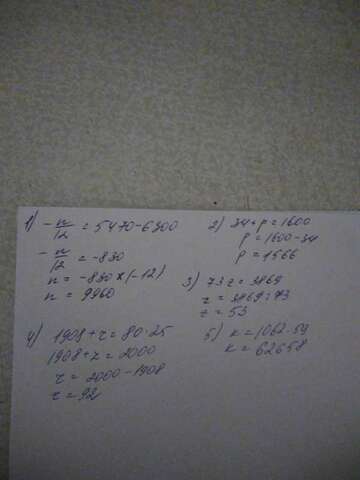 1) -n/12 = 5470-6300
-n/12 = -830
n = -830×(-12)
n = 9960
2) 34+p=1600
p=1600-34
p=1566
3) 73z=3869
z=3869:73
z=53
4) 1908+z=80·25
1908+z=2000
z=2000-1908
z=92
5) k=1062·59
k=62658